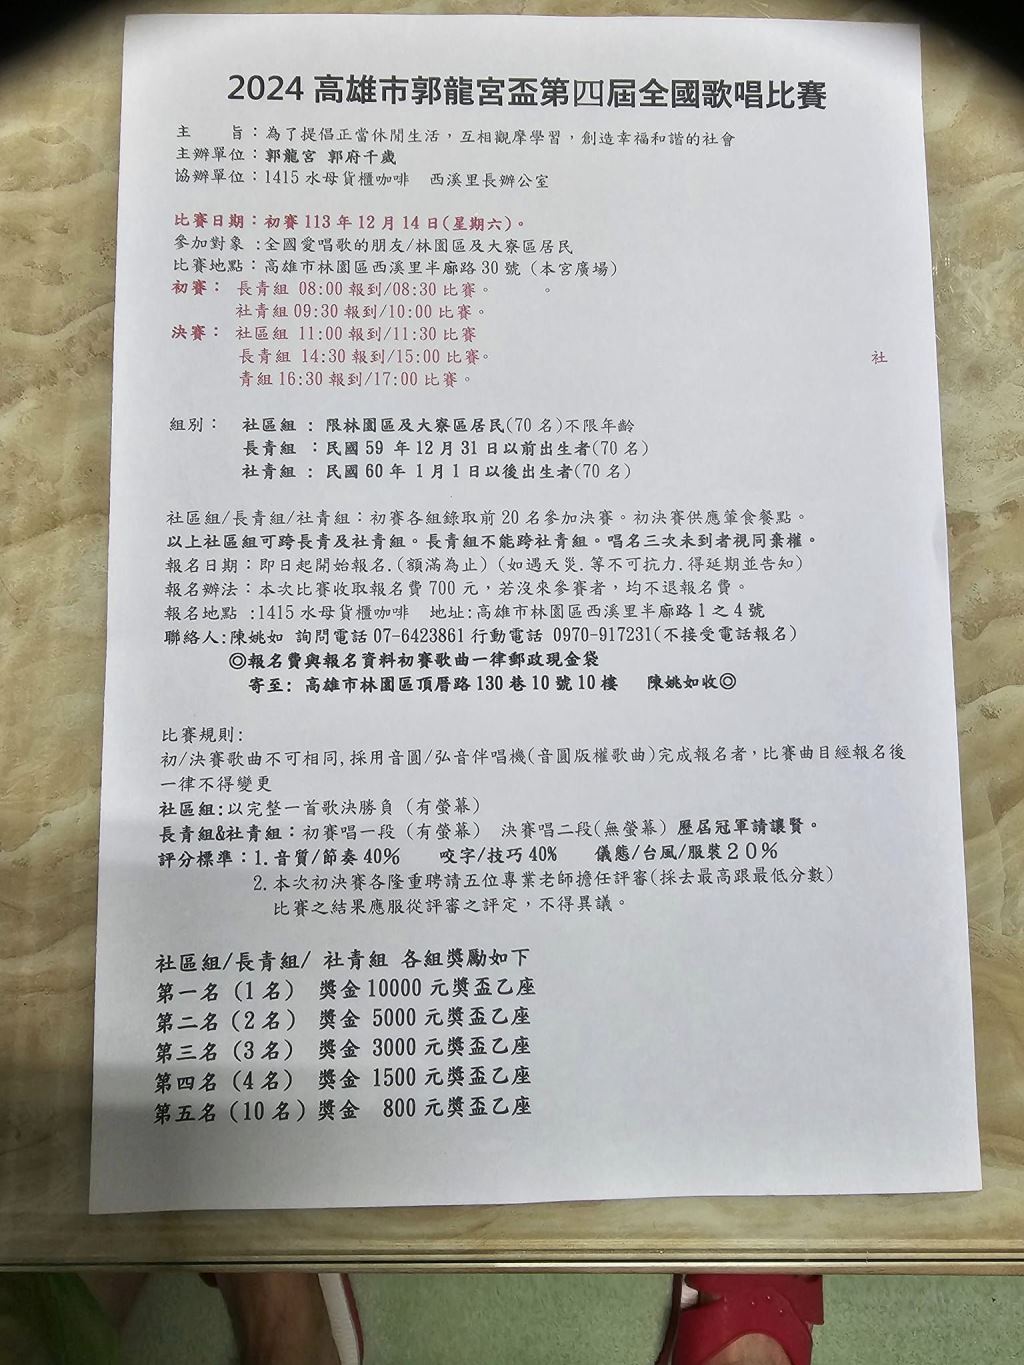 2024 高雄市郭龍宮盃第四屆全國歌唱比賽
主　　旨：為了提倡正當休閒生活，互相觀摩學習，創造幸福和諧的社會
主辦單位：郭龍宮 郭府千歲
協辦單位：1415 水母貨櫃咖啡　西溪里長辦公室
比賽日期：初賽 113 年 12 月 14 日(星期六)。
參加對象 :全國愛唱歌的朋友/林園區及大寮區居民
比賽地點：高雄市林園區西溪里半廍路 30 號（本宮廣場）
初賽： 長青組 08:00 報到/08:30 比賽。　　　。
社青組 09:30 報到/10:00 比賽。
決賽： 社區組 11:00 報到/11:30 比賽
長青組 14:30 報到/15:00 比賽。　　　社
青組 16:30 報到/17:00 比賽。
組別： 社區組 : 限林園區及大寮區居民(70 名)不限年齡
長青組 ：民國 59 年 12 月 31 日以前出生者(70 名)
社青組 : 民國 60 年 1 月 1 日以後出生者(70 名)
社區組/長青組/社青組：初賽各組錄取前 20 名參加決賽。初決賽供應葷食餐點。
以上社區組可跨長青及社青組。長青組不能跨社青組。唱名三次未到者視同棄權。
報名日期：即日起開始報名.(額滿為止) (如遇天災.等不可抗力.得延期並告知)
報名辦法：本次比賽收取報名費 700 元，若沒來參賽者，均不退報名費。
報名地點 :1415 水母貨櫃咖啡　地址:高雄市林園區西溪里半廍路 1 之 4 號
聯絡人:陳姚如 詢問電話 07-6423861 行動電話 0970-917231(不接受電話報名)
◎報名費與報名資料初賽歌曲一律郵政現金袋
寄至: 高雄市林園區頂厝路 130 巷 10 號 10 樓　陳姚如收◎
比賽規則:
初/決賽歌曲不可相同,採用音圓/弘音伴唱機(音圓版權歌曲)完成報名者，比賽曲目經報名後
一律不得變更
社區組:以完整一首歌決勝負（有螢幕）
長青組&社青組：初賽唱一段（有螢幕） 決賽唱二段(無螢幕）歷屆冠軍請讓賢。
評分標準：1.音質/節奏 40%　咬字/技巧 40%　儀態/台風/服裝２０%
2.本次初決賽各隆重聘請五位專業老師擔任評審(採去最高跟最低分數)
比賽之結果應服從評審之評定，不得異議。
社區組/長青組/ 社青組 各組獎勵如下
第一名（1 名） 獎金 10000 元獎盃乙座
第二名（2 名） 獎金 5000 元獎盃乙座
第三名（3 名） 獎金 3000 元獎盃乙座
第四名（4 名） 獎金 1500 元獎盃乙座
第五名（10 名）獎金 800 元獎盃乙座